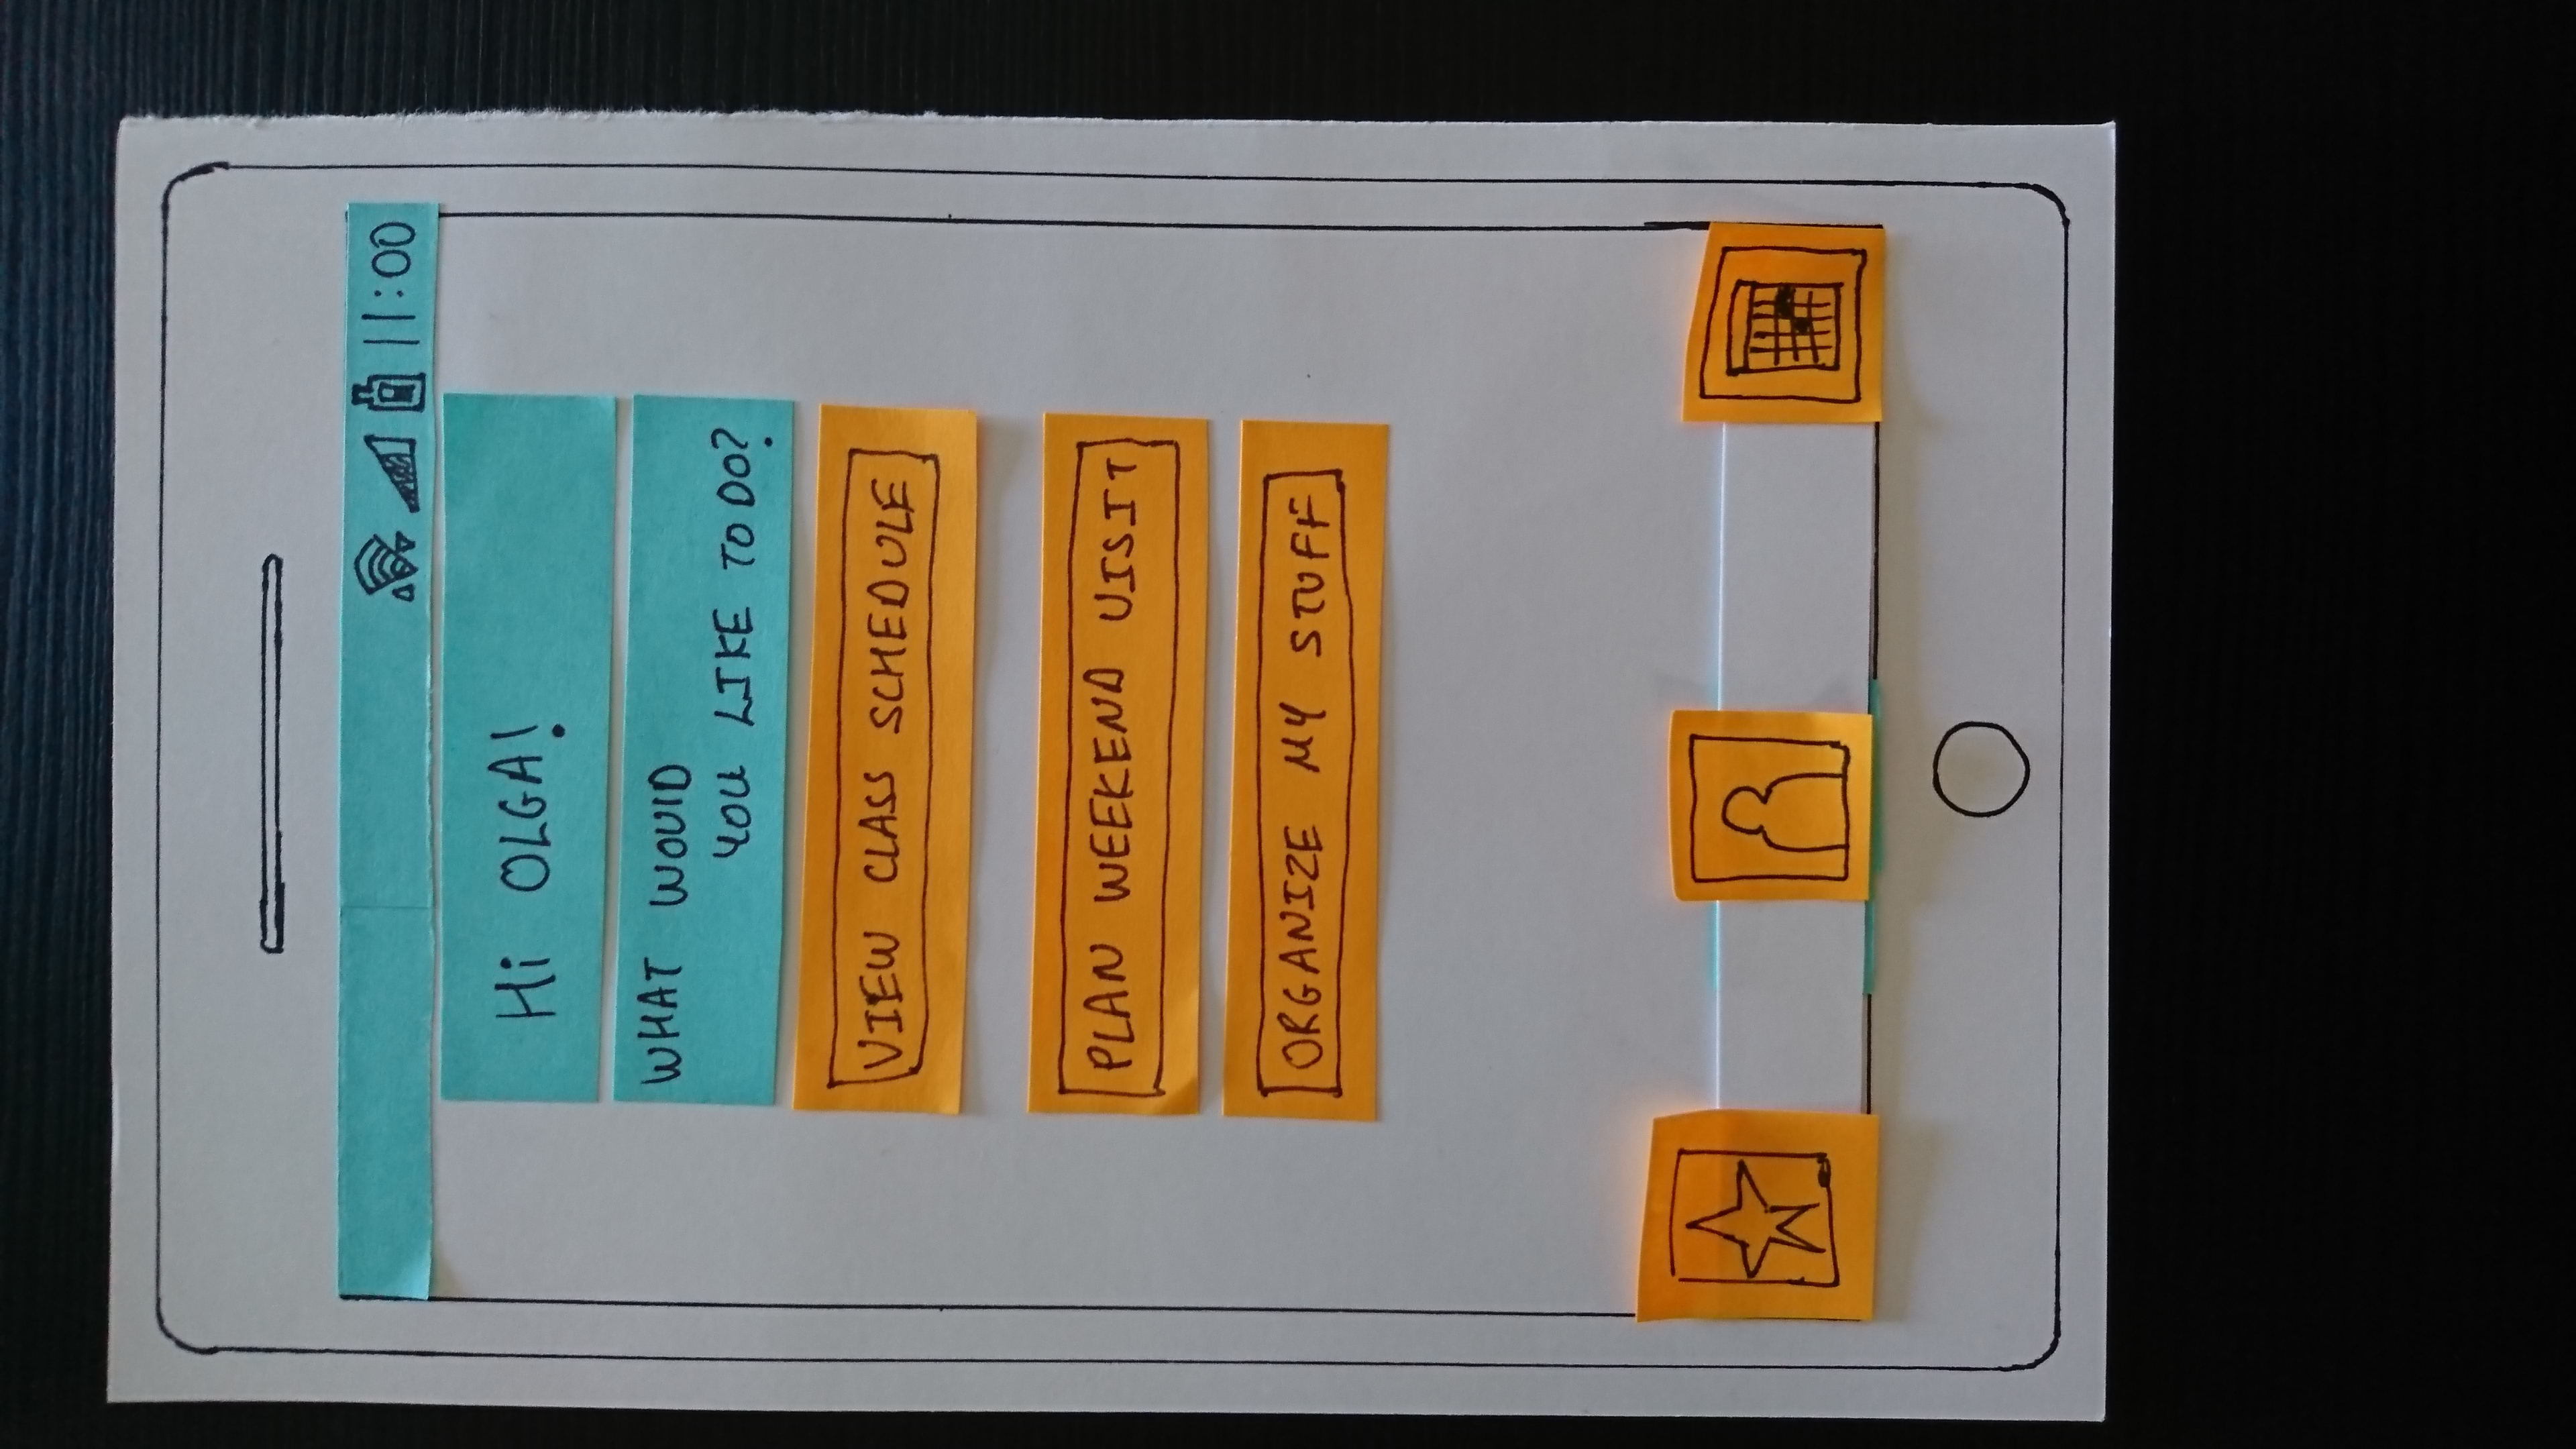 11:00
Hi OLGA!
WHAT WOULD
YOU LIKE TO DO?
VIEW CLASS SCHEDULE
PLAN WEEKEND VISIT
ORGANIZE MY STUFF